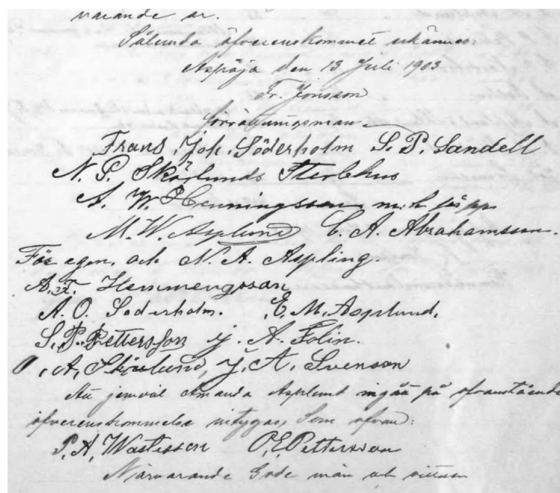 varande år.
Sålunda öfverenskommet erkännes:
Aspöja den 13 Juli 1903
Fr. Jonsson
förrättningsman
Frans Joh. Söderholm S. P. Sandell
N. P. Skärlunds Sterbhus
A. W. Henningsson
M. W. Asplund C. A. Abrahamsson.
För egen och N. A. Aspling.
A. F. Hemmengsson
A. O. Söderholm. E. M. Asplund.
S. P. Pettersson J. A. Folin.
O. A. Skärlund, J. A. Svenson
Att jemväl Amanda Asplund ingått på ofvanstående
öfverenskommelse intygas, Som ofvan:
P. A. Wastesson P. E. Pettersson
Närvarande Gode män och vittnen